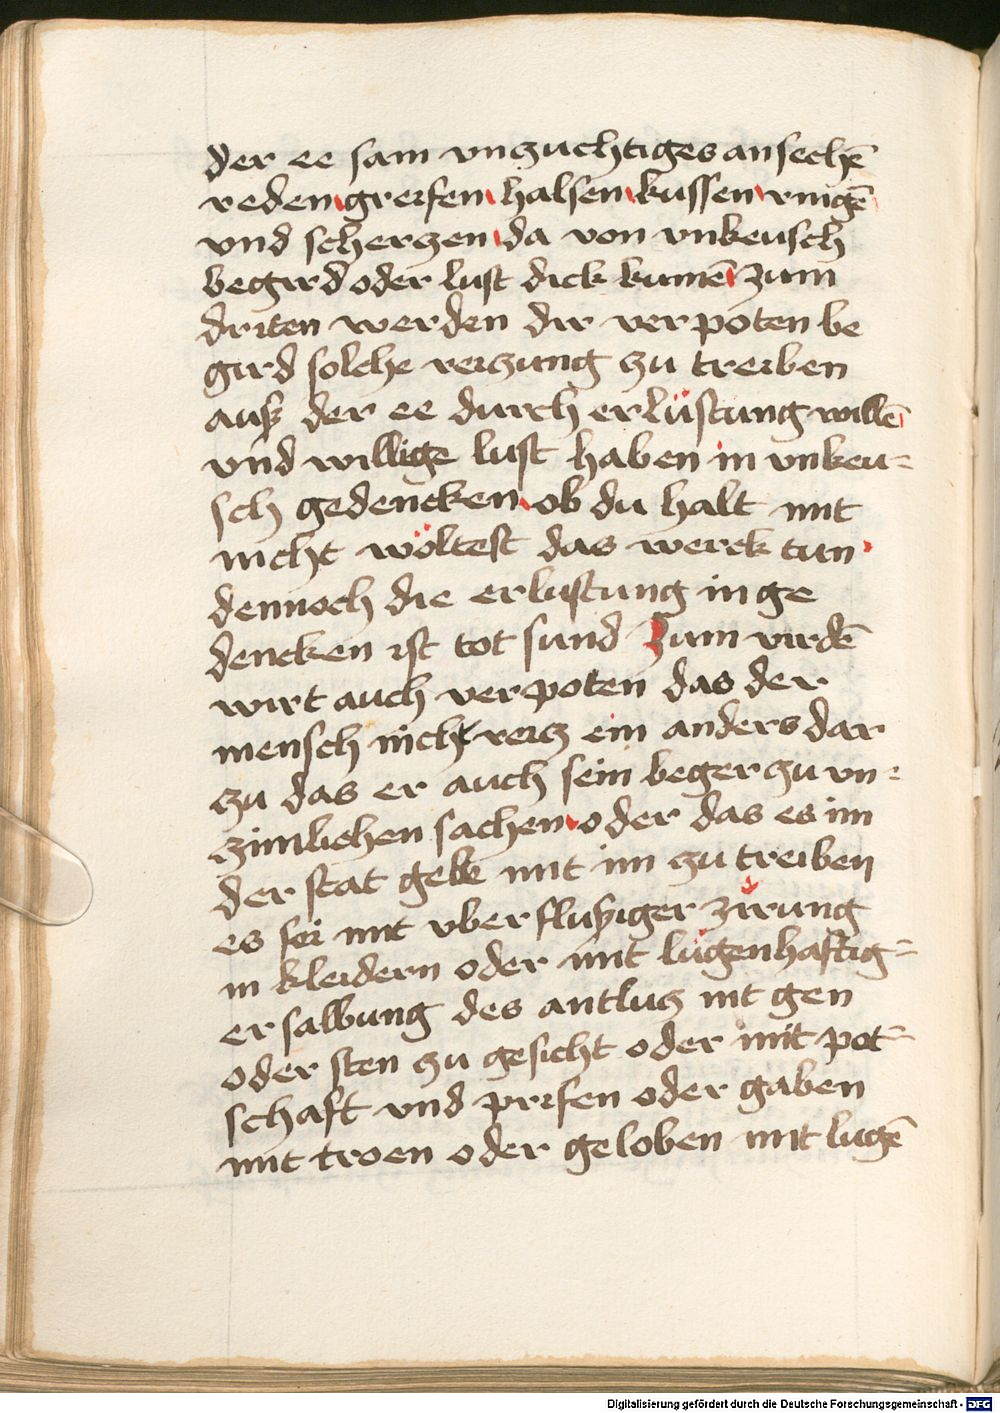 der ee sam vnzuchtiges ansechē
reden greifen halsen kussen ringē
vnd scherzen da von vnkeusch
begird oder lust dick kumē zum
driten werden dir verpoten be
gird solche reizung zu treiben
auß der ee durch erlüstung willē
vnd willige lust haben in vnkeu-
sch gedencken ob du halt mit
nicht wöltest das werck tun
dennoch die erlustung in ge
dencken ist tot sund Zum virdē
wirt auch verpoten das der
mensch nicht reiz ein anders dar
zu das er auch sein beger zu vn-
zimlichen sachen oder das es im
der stat geb mit im zu treiben
es sei mit vberflußiger zirung
in kleidern oder mit lügenhaftig-
er salbung des antlutz mit gen
oder sten zu gesicht oder mit pot-
schaft vnd prifen oder gaben
mit troen oder geloben mit lugē
Digitalisierung gefördert durch die Deutsche Forschungsgemeinschaft - DFG